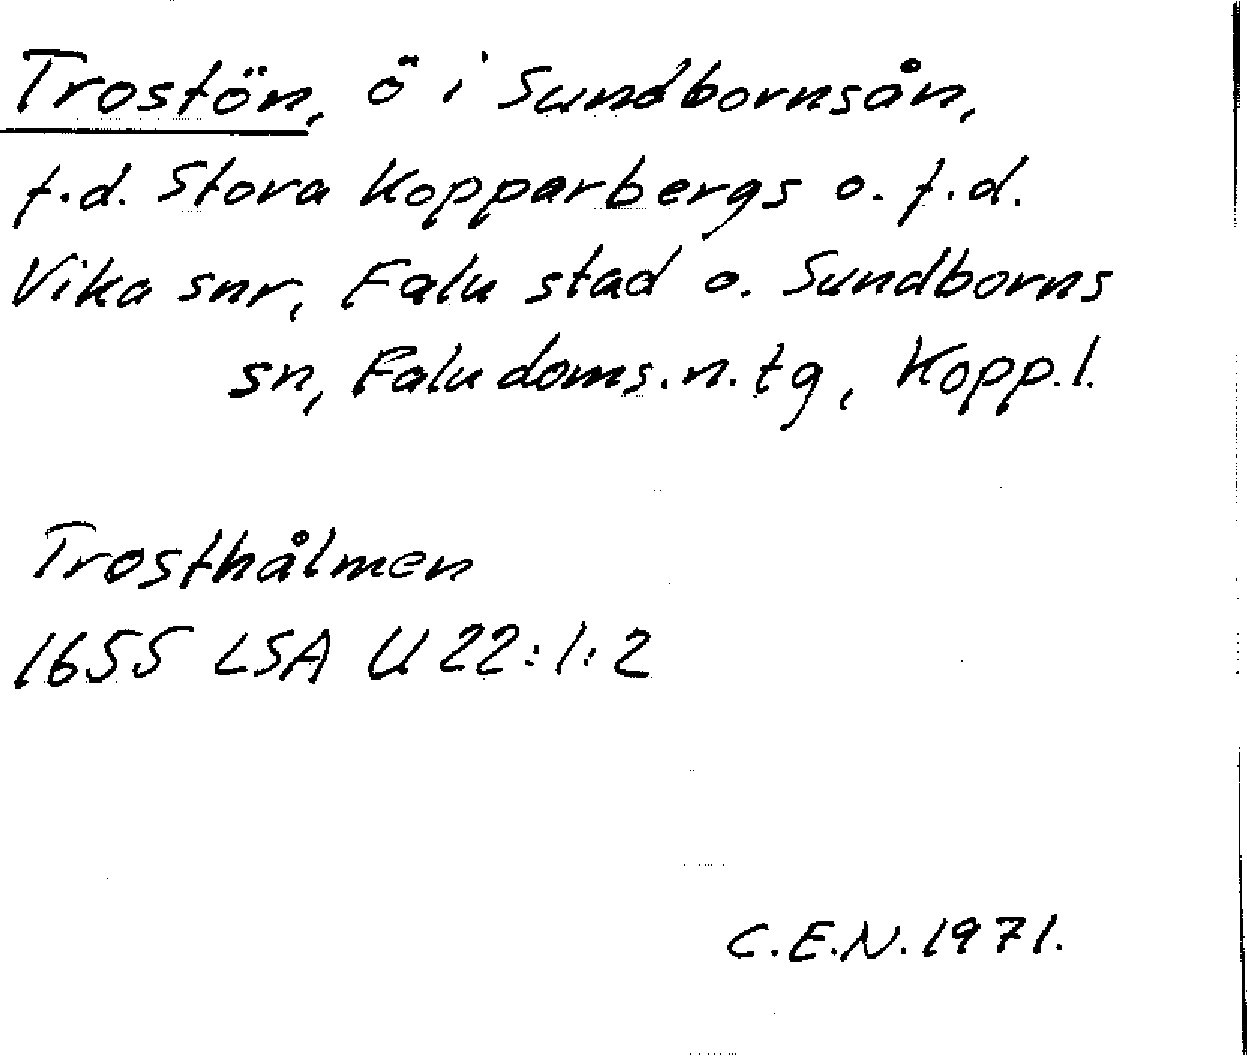 Trostön, ö i Sundbornsån,
f.d. Stora Kopparbergs o. f.d.
Vika snr, Falu stad o. Sundborns
sn, Falu doms.n.tg, Kopp.l.
Trosthålmen
1655 LSA U 22:1:2
C.E.N. 1971.